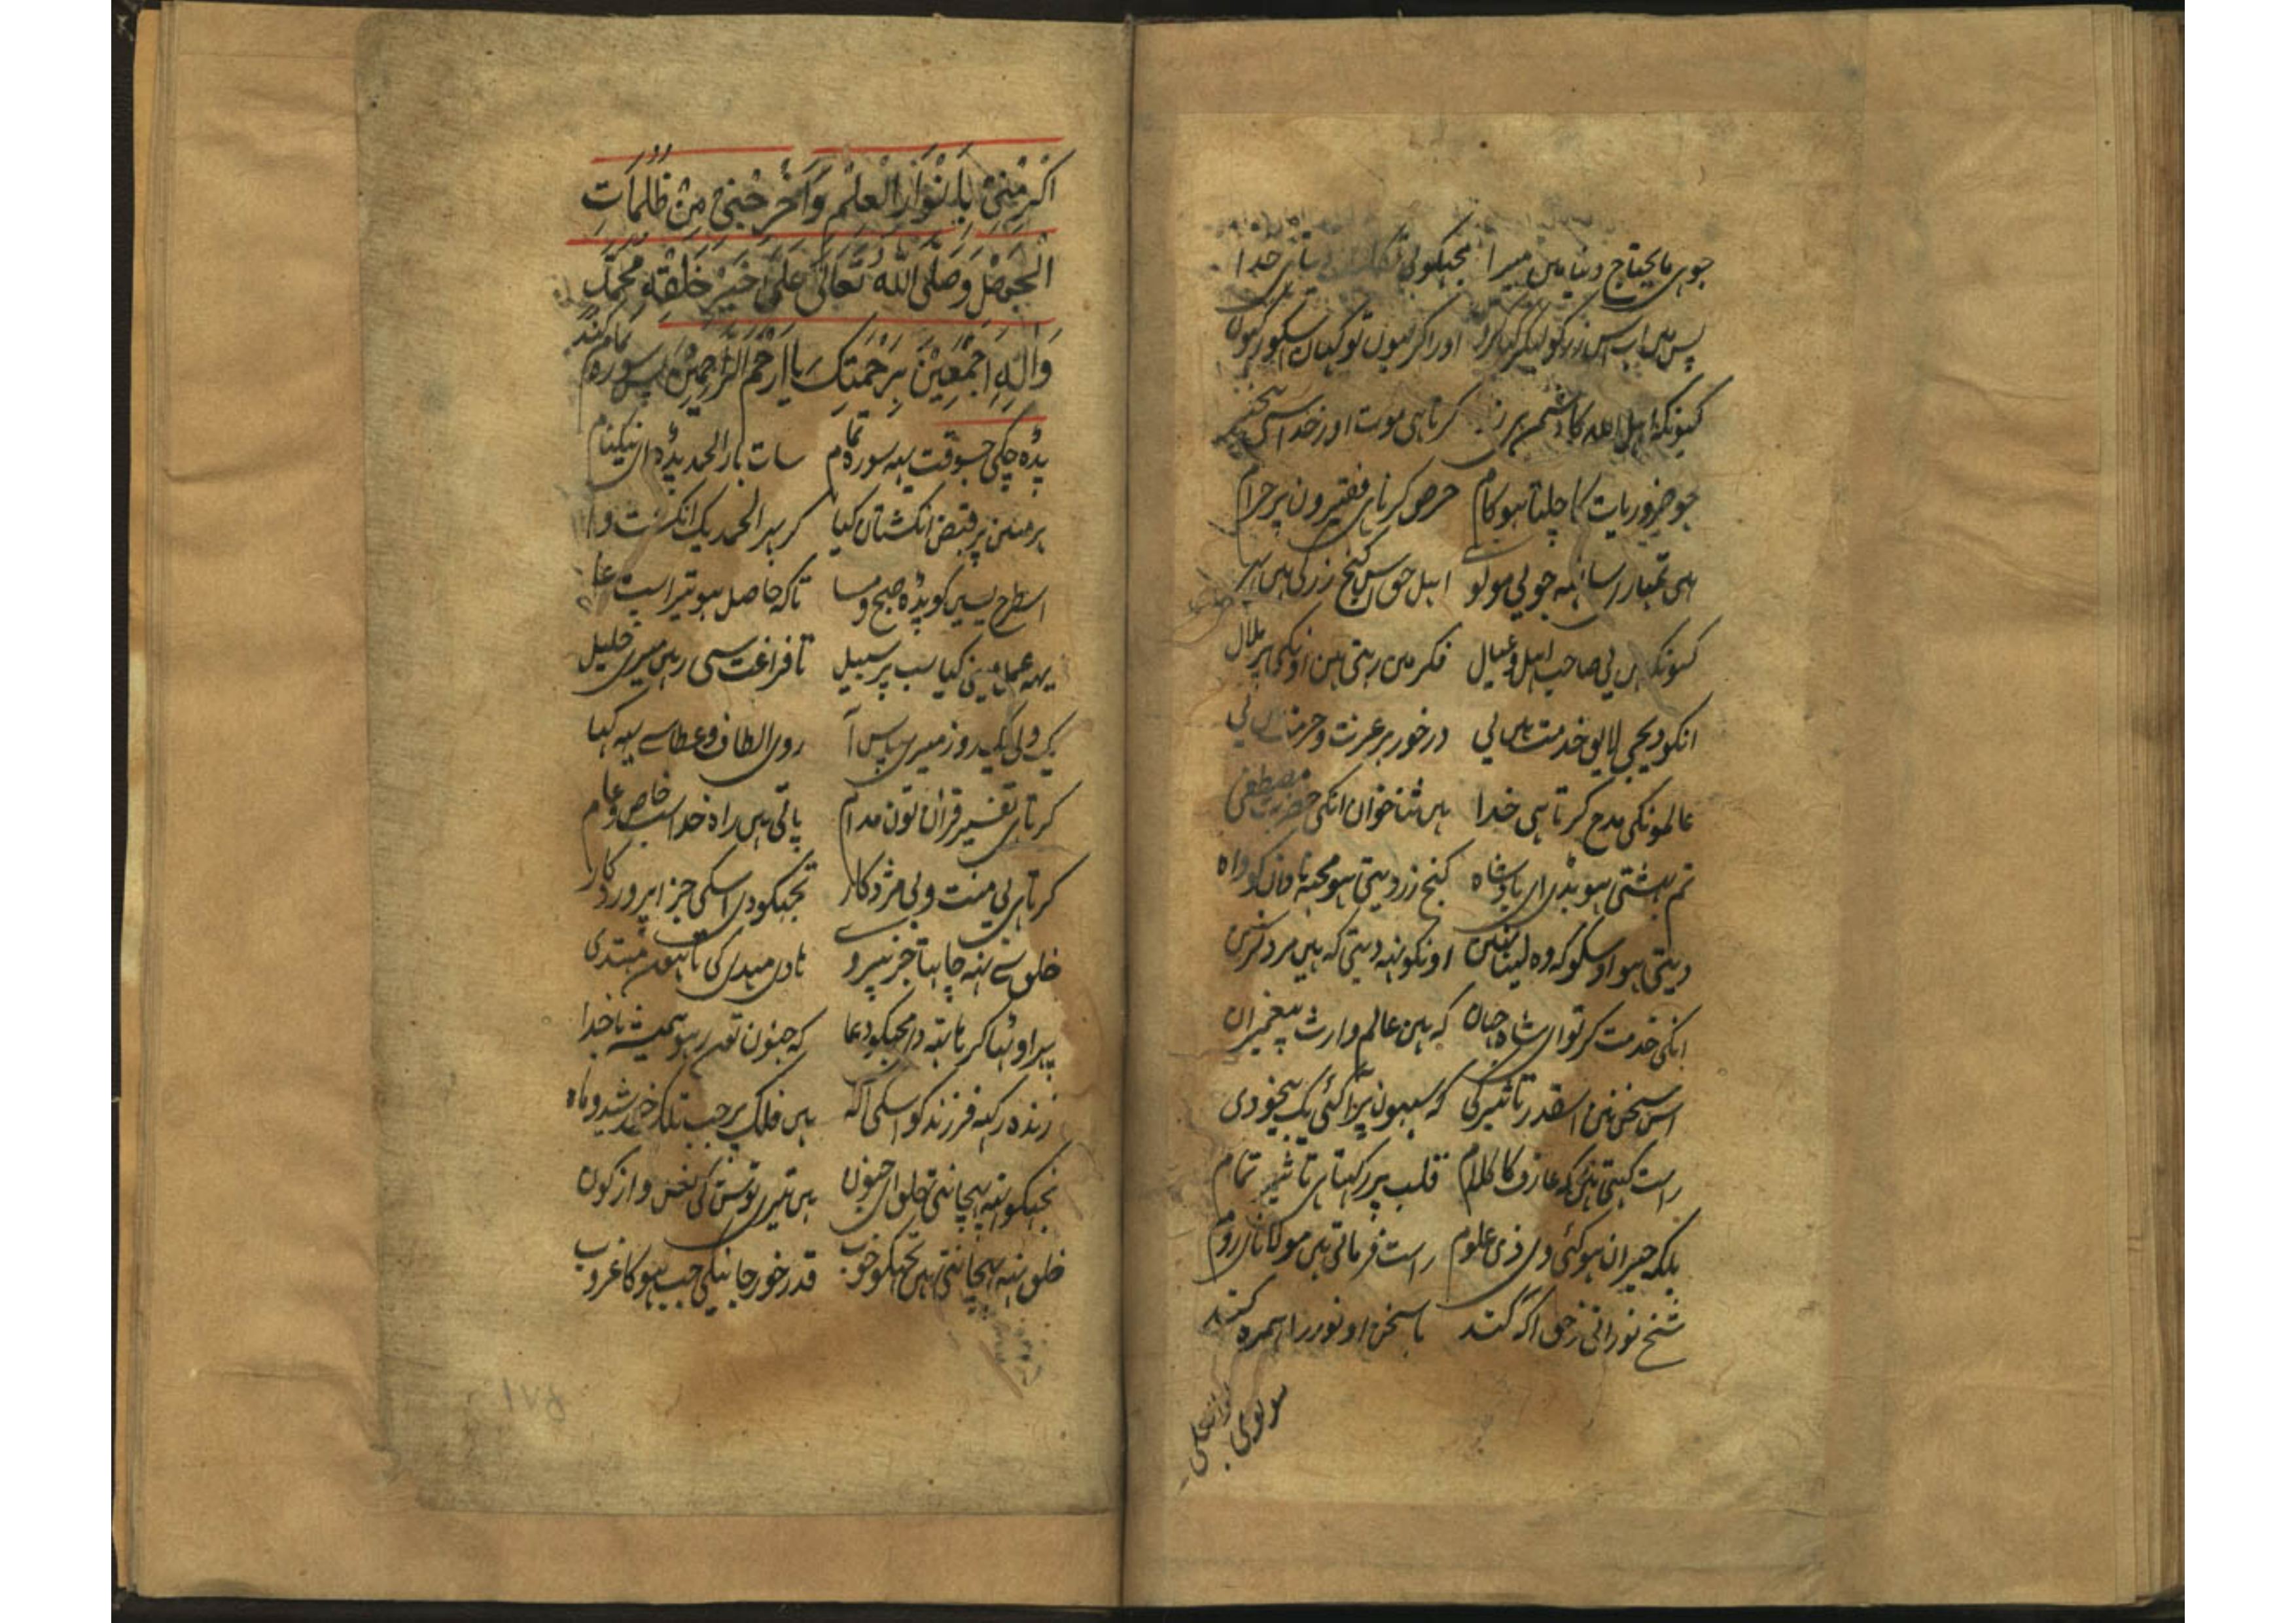 جو ہی مایحتاج دنیا میں میرا مجہکو بی خدا
پس میں اب اس زر کو لیکر کیا کروں اور اگر لیوں تو کہاں اسکو رکہوں
کیونکہ اہل اللہ کا دشمن ہی زر کرتا ہی موت اور خدا سی بیخبر
جو ضروریات کا چلتا ہو کام حرص کرنا ہی فقیرون پر حرام
ہی تمہارا ساتہہ جو بی مولوی اہل حق اس گنج زر کی ہیں
کیونکہ ہیں یی صاحب اہل و عیال فکر میں رہتی ہین اونکی پر ملال
انکو دیجی لایق خدمت ہیں یی درخور ہر عزت و حرمت ہیں یی
عالمونکی مدح کرتا ہی خدا ہیں ثنا خوان انکی حضرت مصطفی
تم بہشتی ہو بڑی ای بادشاہ گنج زر دیتی ہو مجہہ نادان کو واہ
دیتی ہو اوسکو کہ وہ لیتا نہیں اونکو نہہ دیتی کہ ہیں مرد گزین
انکی خدمت کر تو ای شاہ جہان کہ ہین عالم وارث پیغمبران
اس سخن نین اسقدر تاثیر کی کہ سبہون پر آگئی یک بیخودی
راست کہتی ہیں کہ عارف کا کلام قلب پر رکہتا ہی تاثیر تمام
بلکہ حیران ہو گئی وی ذی علوم راست فرماتی ہیں مولانای روم
شیخ نورانی زحق آگہ کند با سخن او نور را ہمرہ کند
مولوی
اَکْرِمْنِیْ بِاَنْوَارِ الْعِلْمِ وَاَخْرِجْنِیْ مِنْ ظُلُمَاتِ
الْجَهْلِ وَصَلَّی اللّٰهُ تَعَالٰی عَلٰی خَیْرِ خَلْقِهِ مُحَمَّدٍ
وَاٰلِهِ اَجْمَعِیْنَ بِرَحْمَتِکَ یَا اَرْحَمَ الرَّاحِمِیْنَ پس سورہ تمام کند
پڑہ چکی جسوقت یہہ سورہ تمام سات بار الحمد پڑہ ای نیکنام
ہر مبین پر قبض انگشتاں کیا کر بہر الحمد یک انگشت وا
اسطرح یسین کو پڑہ صبح و مسا تاکہ حاصل ہو تیرا
یہہ عمل مینی کیا سب پر سبیل تا فراغت سی رہیں میری خلیل
یک ولی یک روز میری پاس آ روی الطاف و عطا سے یہہ کہا
کرتا ہی تفسیر قرآن تون مدام پاتی ہیں راہ خدا سب خاص و عام
کرتا ہی بی منت و بی مزد کار تجہکو دی اسکی جزا پروردگار
خلق سے نہہ چاہتا جز پیروی ہادی مہدی کی تا ہون مہتدی
پہر اوٹہا کر ہاتہہ دی مجہکو دعا کہ جنون تون رہو ہمیشہ با خدا
زندہ رکہہ فرزند کو اسکی الٰہ ہیں فلک پر جب تلک خورشید و ماہ
تجہکو نہہ پہچانتی خلق ای جنون ہیں تیری
خلق نہہ پہچانتی ہیں تجہکو خوب قدر خور جانینگی جب ہو گا غروب